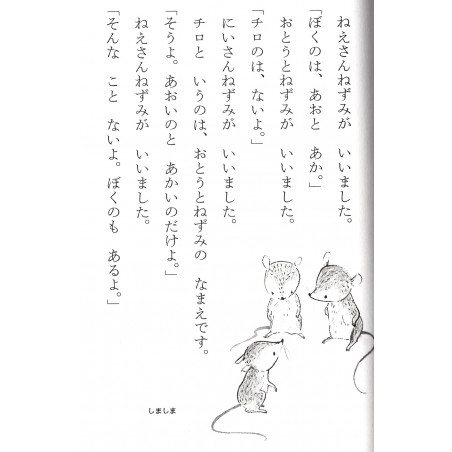 ねえさんねずみが　いいました。
「ぼくのは、あおと　あか。」
おとうとねずみが　いいました。
「チロのは、ないよ。」
にいさんねずみが　いいました。
チロと　いうのは、おとうとねずみの　なまえです。
「そうよ。あおいのと　あかいのだけよ。」
ねえさんねずみが　いいました。
「そんな　こと　ないよ。ぼくのも　あるよ。」
しましま